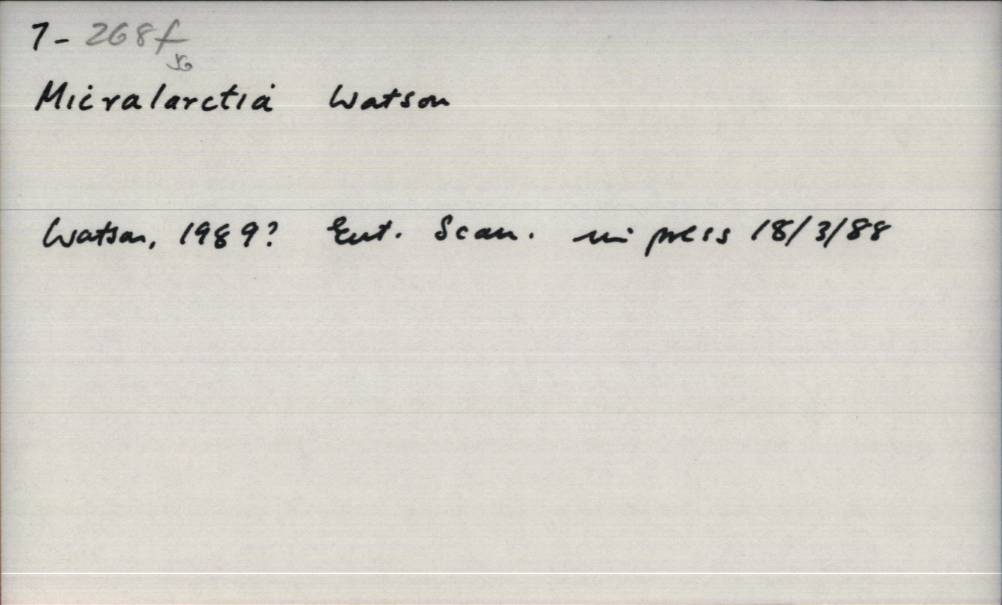 7- 268f
Micralarctia Watson
Watson, 1989? Ent. Scan. in press 18/3/88